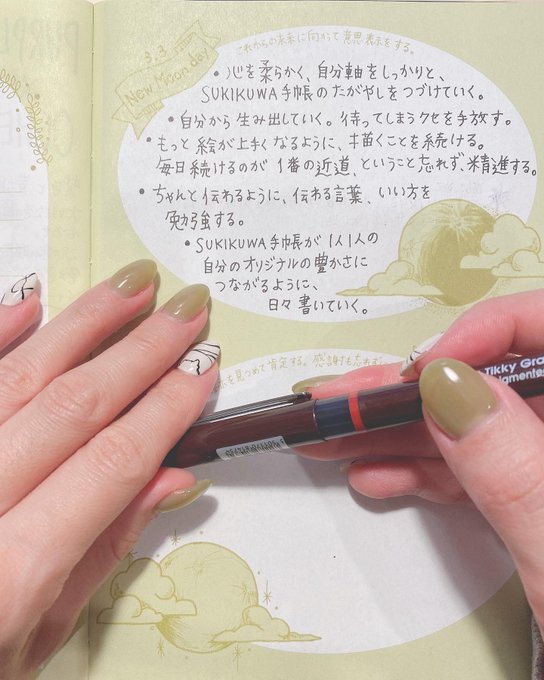 3.3
New Moon day
これからの未来に向かって意思表示をする。
・心を柔らかく、自分軸をしっかりと、
SUKIKUWA手帳のたがやしをつづけていく。
・自分から生み出していく。待ってしまうクセを手放す。
・もっと絵が上手くなるように、描くことを続ける。
毎日続けるのが1番の近道、ということ忘れず、精進する。
・ちゃんと伝わるように、伝わる言葉、いい方を
勉強する。
・SUKIKUWA手帳が1人1人の
自分のオリジナルの豊かさに
つながるように、
日々書いていく。
を見つめて肯定する。感謝も忘れず
Tikky Gra